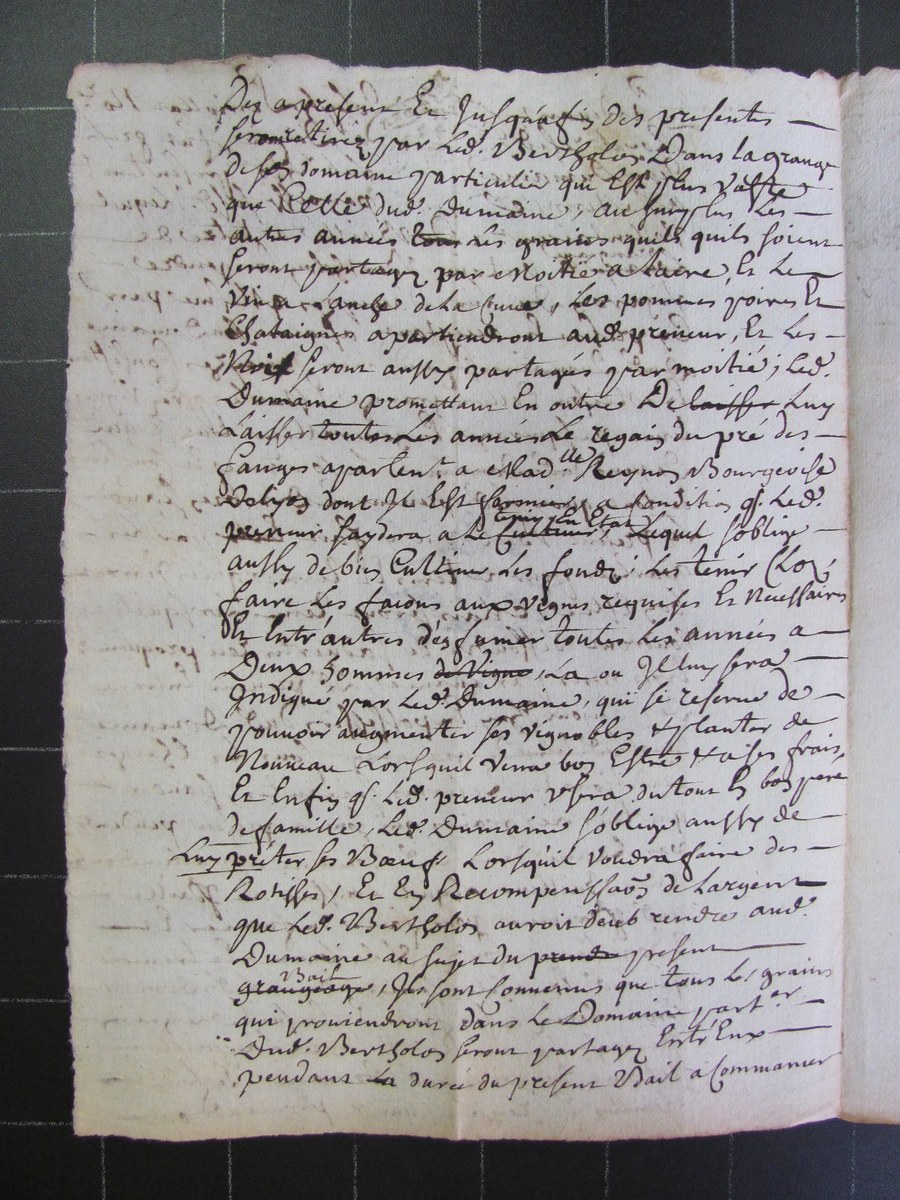 Dez apresent Et Jusqu'a fin des presentes
seront retirez par Led. Bertholon Dans la grange
de son domaine particulie qui Est plus vaste
que Celle dud. Dumaine, au surplus Les
autres années tous Les grains quils quils soient
seront partagez par Moitié a laire, Et Le
vin a Lanche de La Cuve, Les pommes poires Et
Chataignes apartiendront aud. preneur, Et Les
Noix seront aussy partagés par moitié; Led.
Dumaine promettant En outre De laisser Luy
Laisser toutes Les années Le regain du pré des
fanges apartent. a Mad.lle Reynon Bourgeoise
De lyon dont Il Est fermier, a Condition q. Led.
preneur saydera a Le Cultiver, tenir En Etat Lequel soblige
aussy de bien Cultiver Les fondz, Les tenir Clos,
faire Les facons aux vignes requises Et Necessaires
Et Entr'autres d'en fumer toutes Les années a
Deux hommes de Vigne, La ou Il luy sera
Indiqué par Led. Dumaine, qui se reserve de
pouvoir augmenter ses vignobles & planter de
Nouveau Lorsquil verra bon Estre & a ses frais,
Et Enfin q. Led. preneur Usera du tout En bon pere
de famille, Led. Dumaine soblige aussy de
Luy préter ses Bœufs Lorsquil voudra faire des
Rotisses, Et En Recompenssaon de Largent
que Led. Bertholon auroit deub rendre aud.
Dumaine au sujet du present
grangeage, Bail Ils sont Convenus que tous Les grains
qui proviendront dans Le Domaine part.er
Dud. Bertholon seront partagez Entr'Eux
pendant La durée du present Bail a Commancer